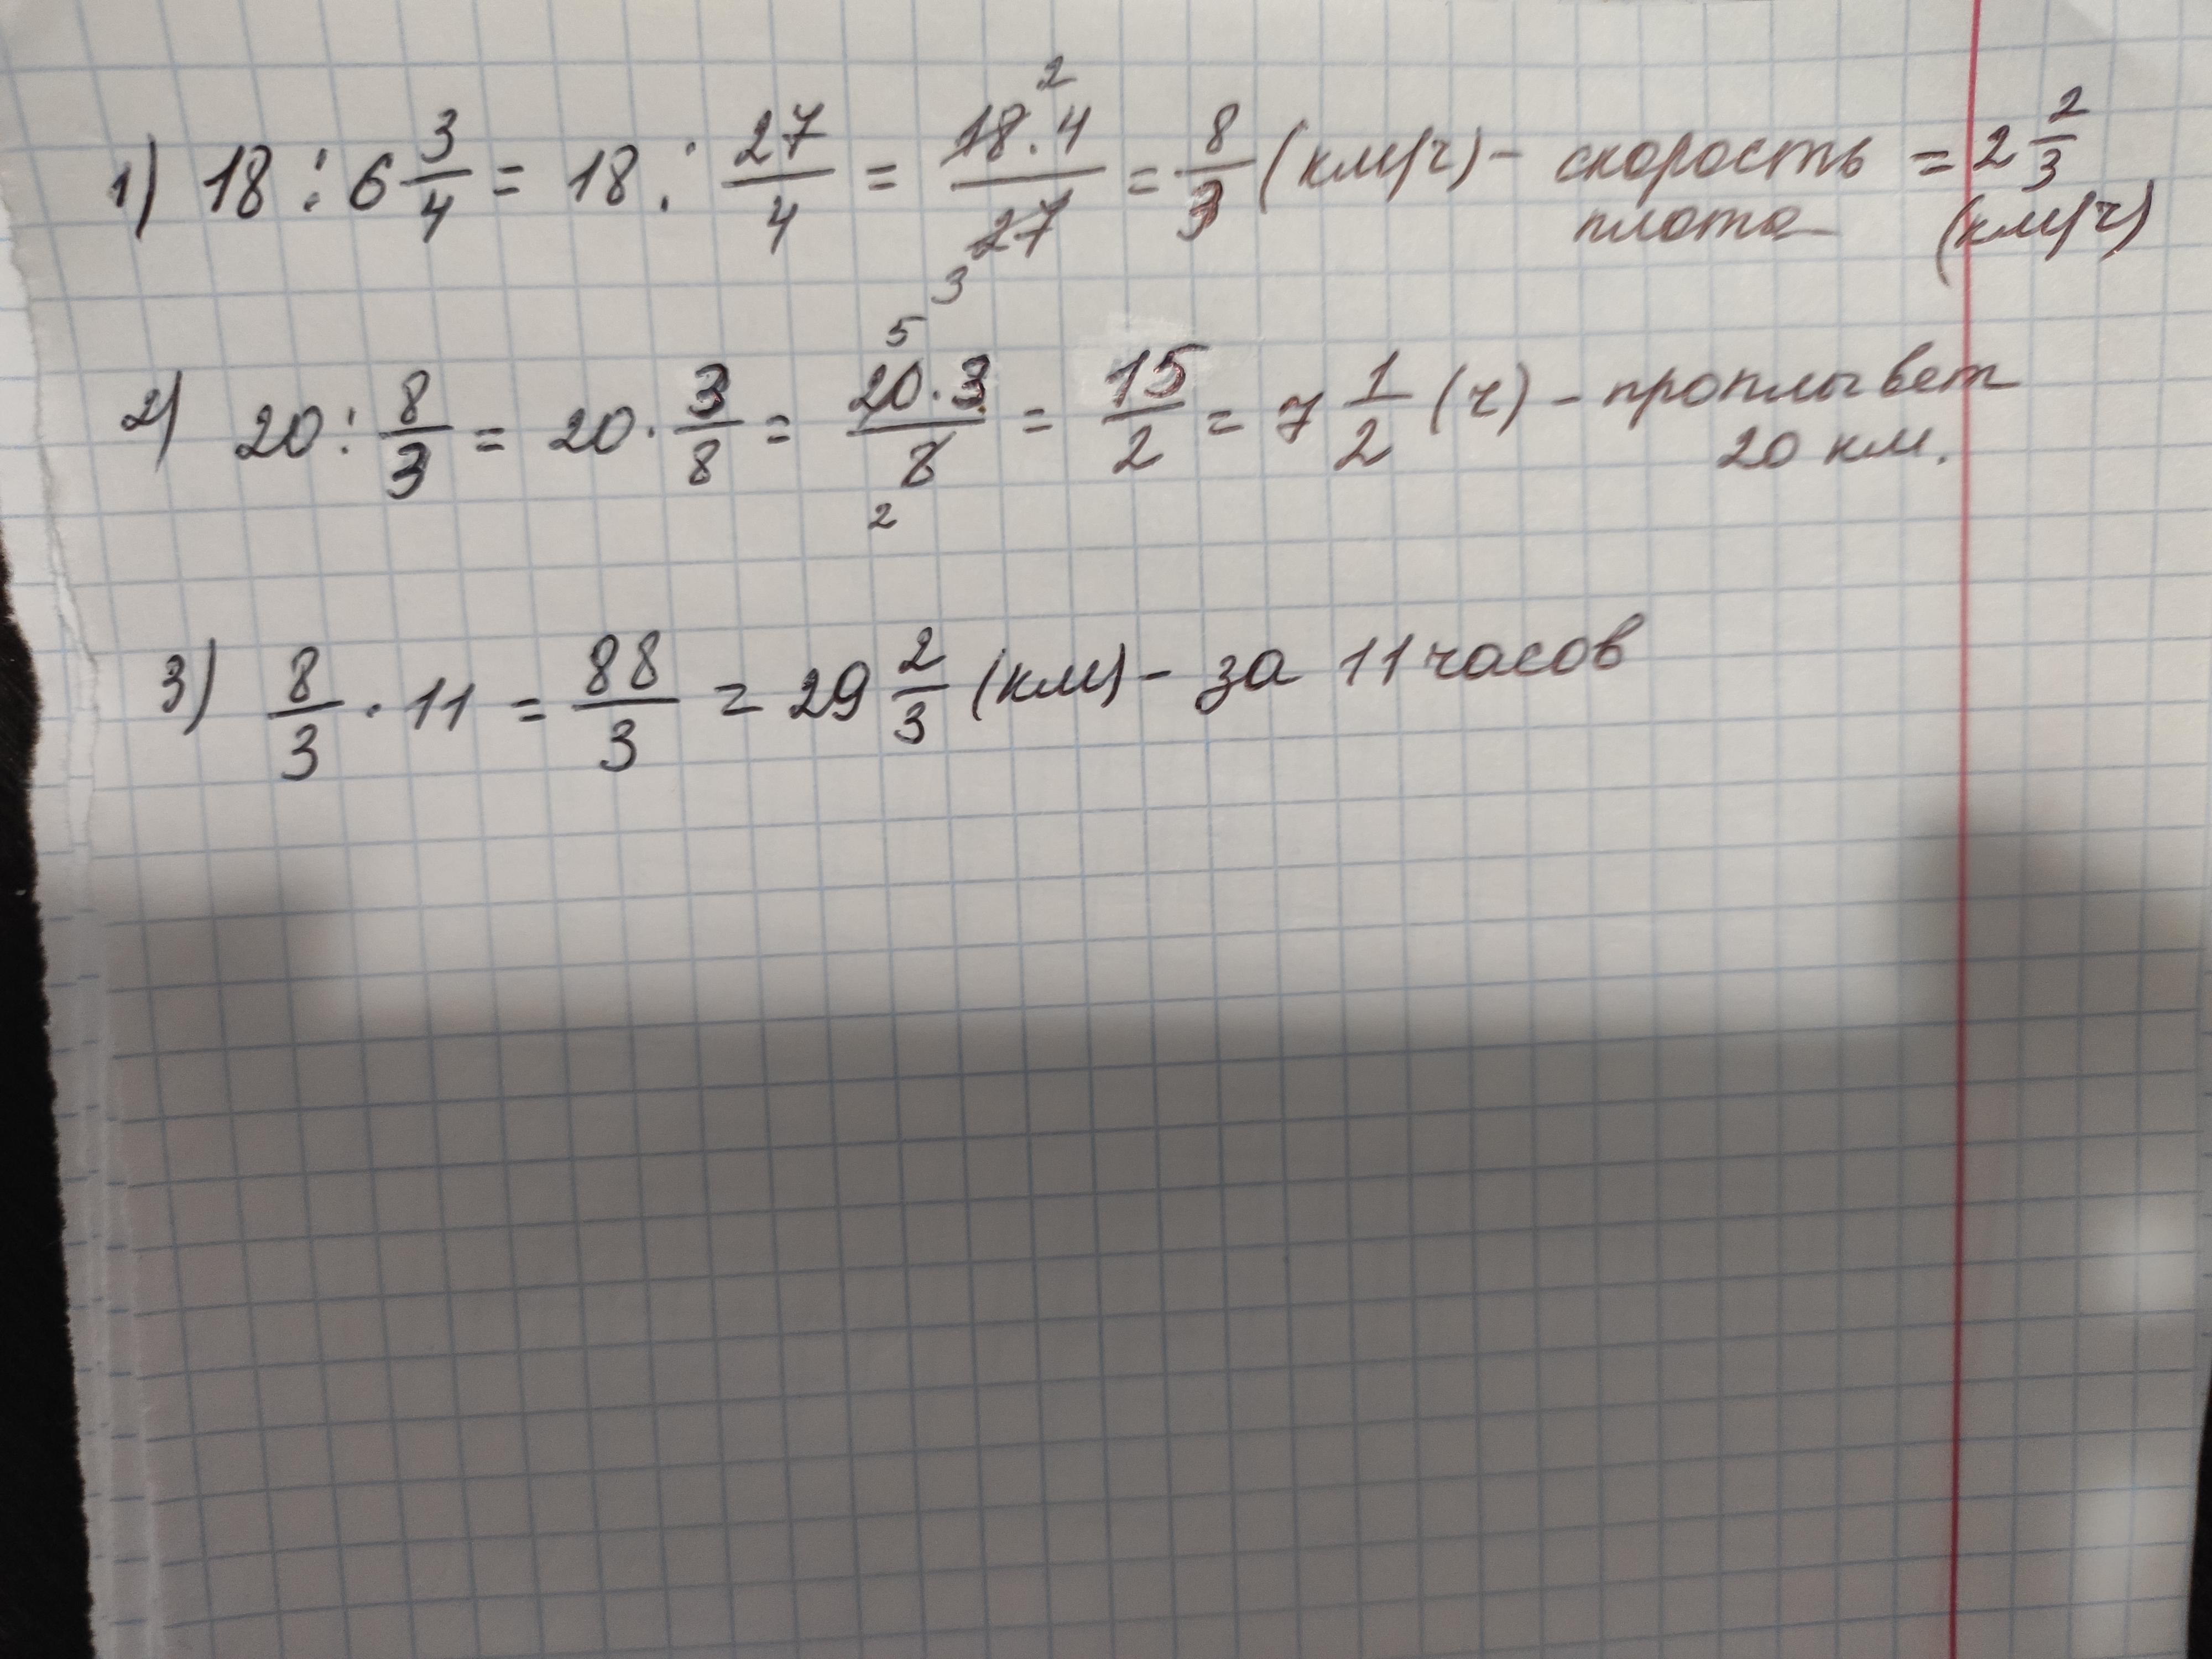 1) 18 : 6 3/4 = 18 : 27/4 = 18·4/27 = 8/3 (км/ч) - скорость = 2 2/3
2
3
плота (км/ч)
2) 20 : 8/3 = 20 · 3/8 = 20·3/8 = 15/2 = 7 1/2 (ч) - проплывет
5
2
20 км.
3) 8/3 · 11 = 88/3 = 29 2/3 (км) - за 11 часов